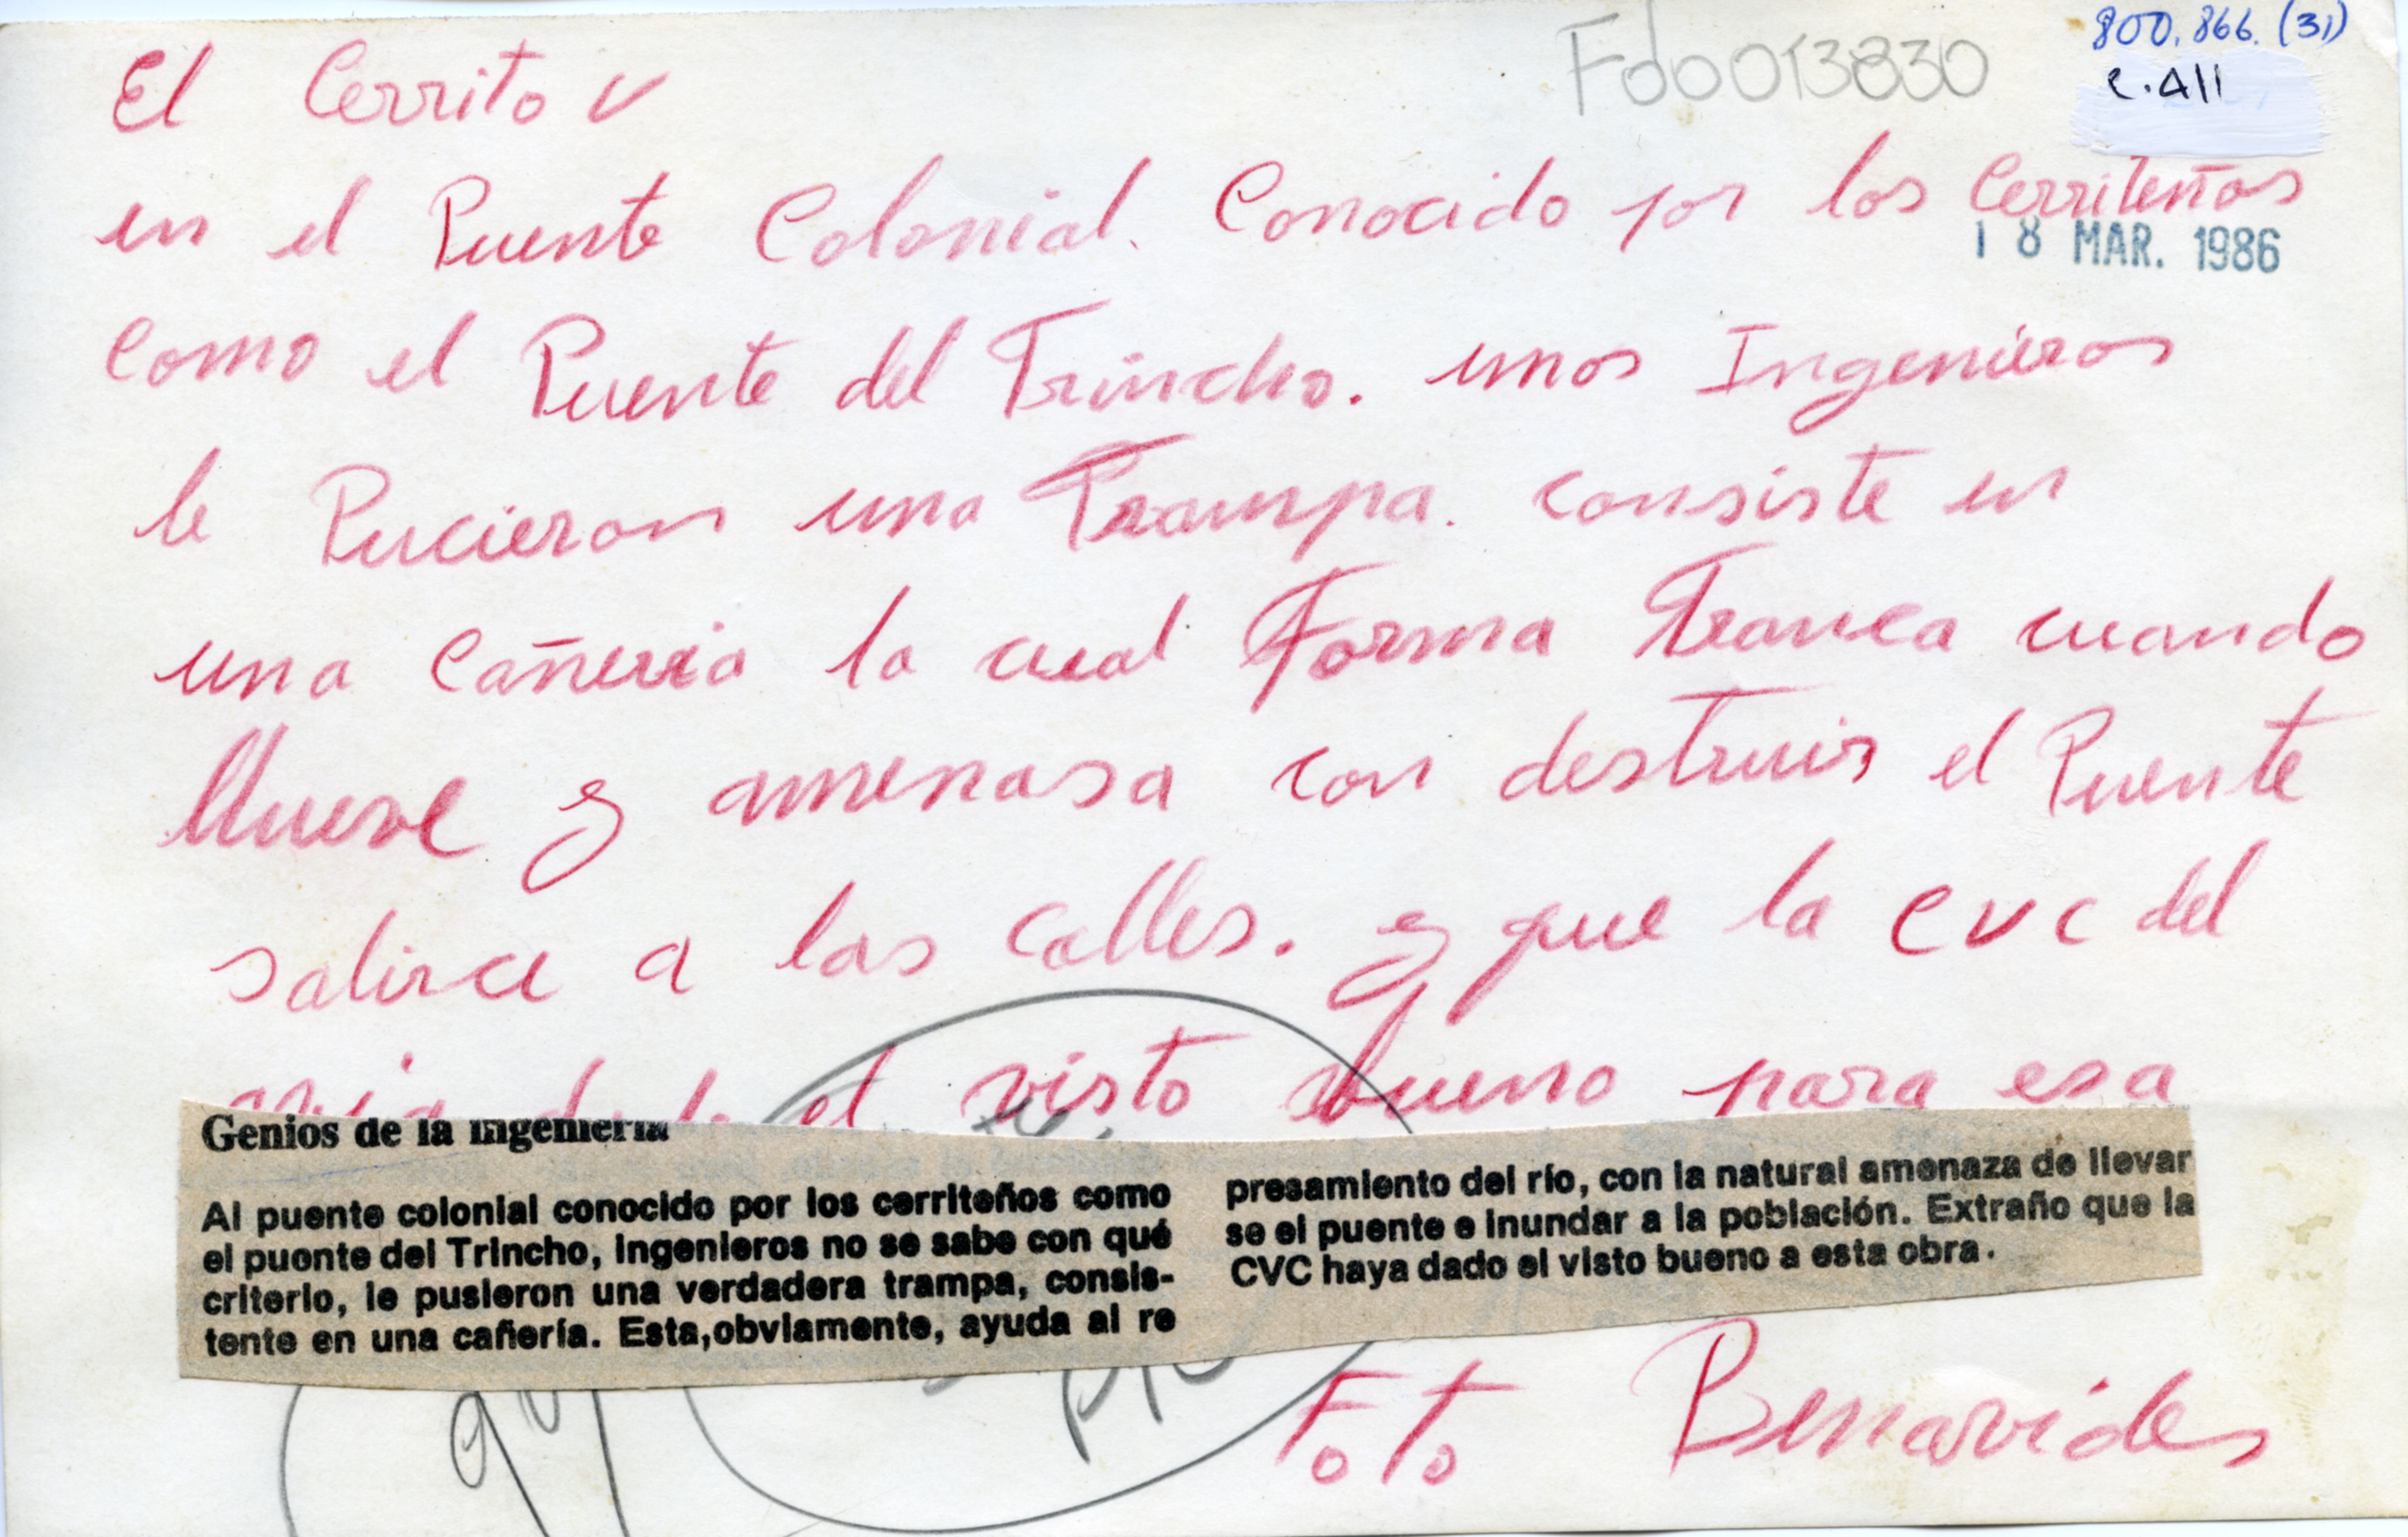 800.866.(31)
Fdo013830
c.411
El Cerrito V
en el Puente Colonial. Conocido por los Cerriteños
18 MAR. 1986
como el Puente del Trincho. unos Ingenieros
le Pucieron una Trampa. consiste en
una Cañeria la cual Forma Tranca cuando
llueve y amenasa con destruir el Puente
salirce a las calles. y que la CVC del
el visto bueno para esa
Genios de la ingeniería
Al puente colonial conocido por los cerriteños como
el puente del Trincho, ingenieros no se sabe con qué
criterio, le pusieron una verdadera trampa, consis-
tente en una cañería. Esta,obviamente, ayuda al re
presamiento del río, con la natural amenaza de llevar
se el puente e inundar a la población. Extraño que la
CVC haya dado el visto bueno a esta obra.
Foto Benavides